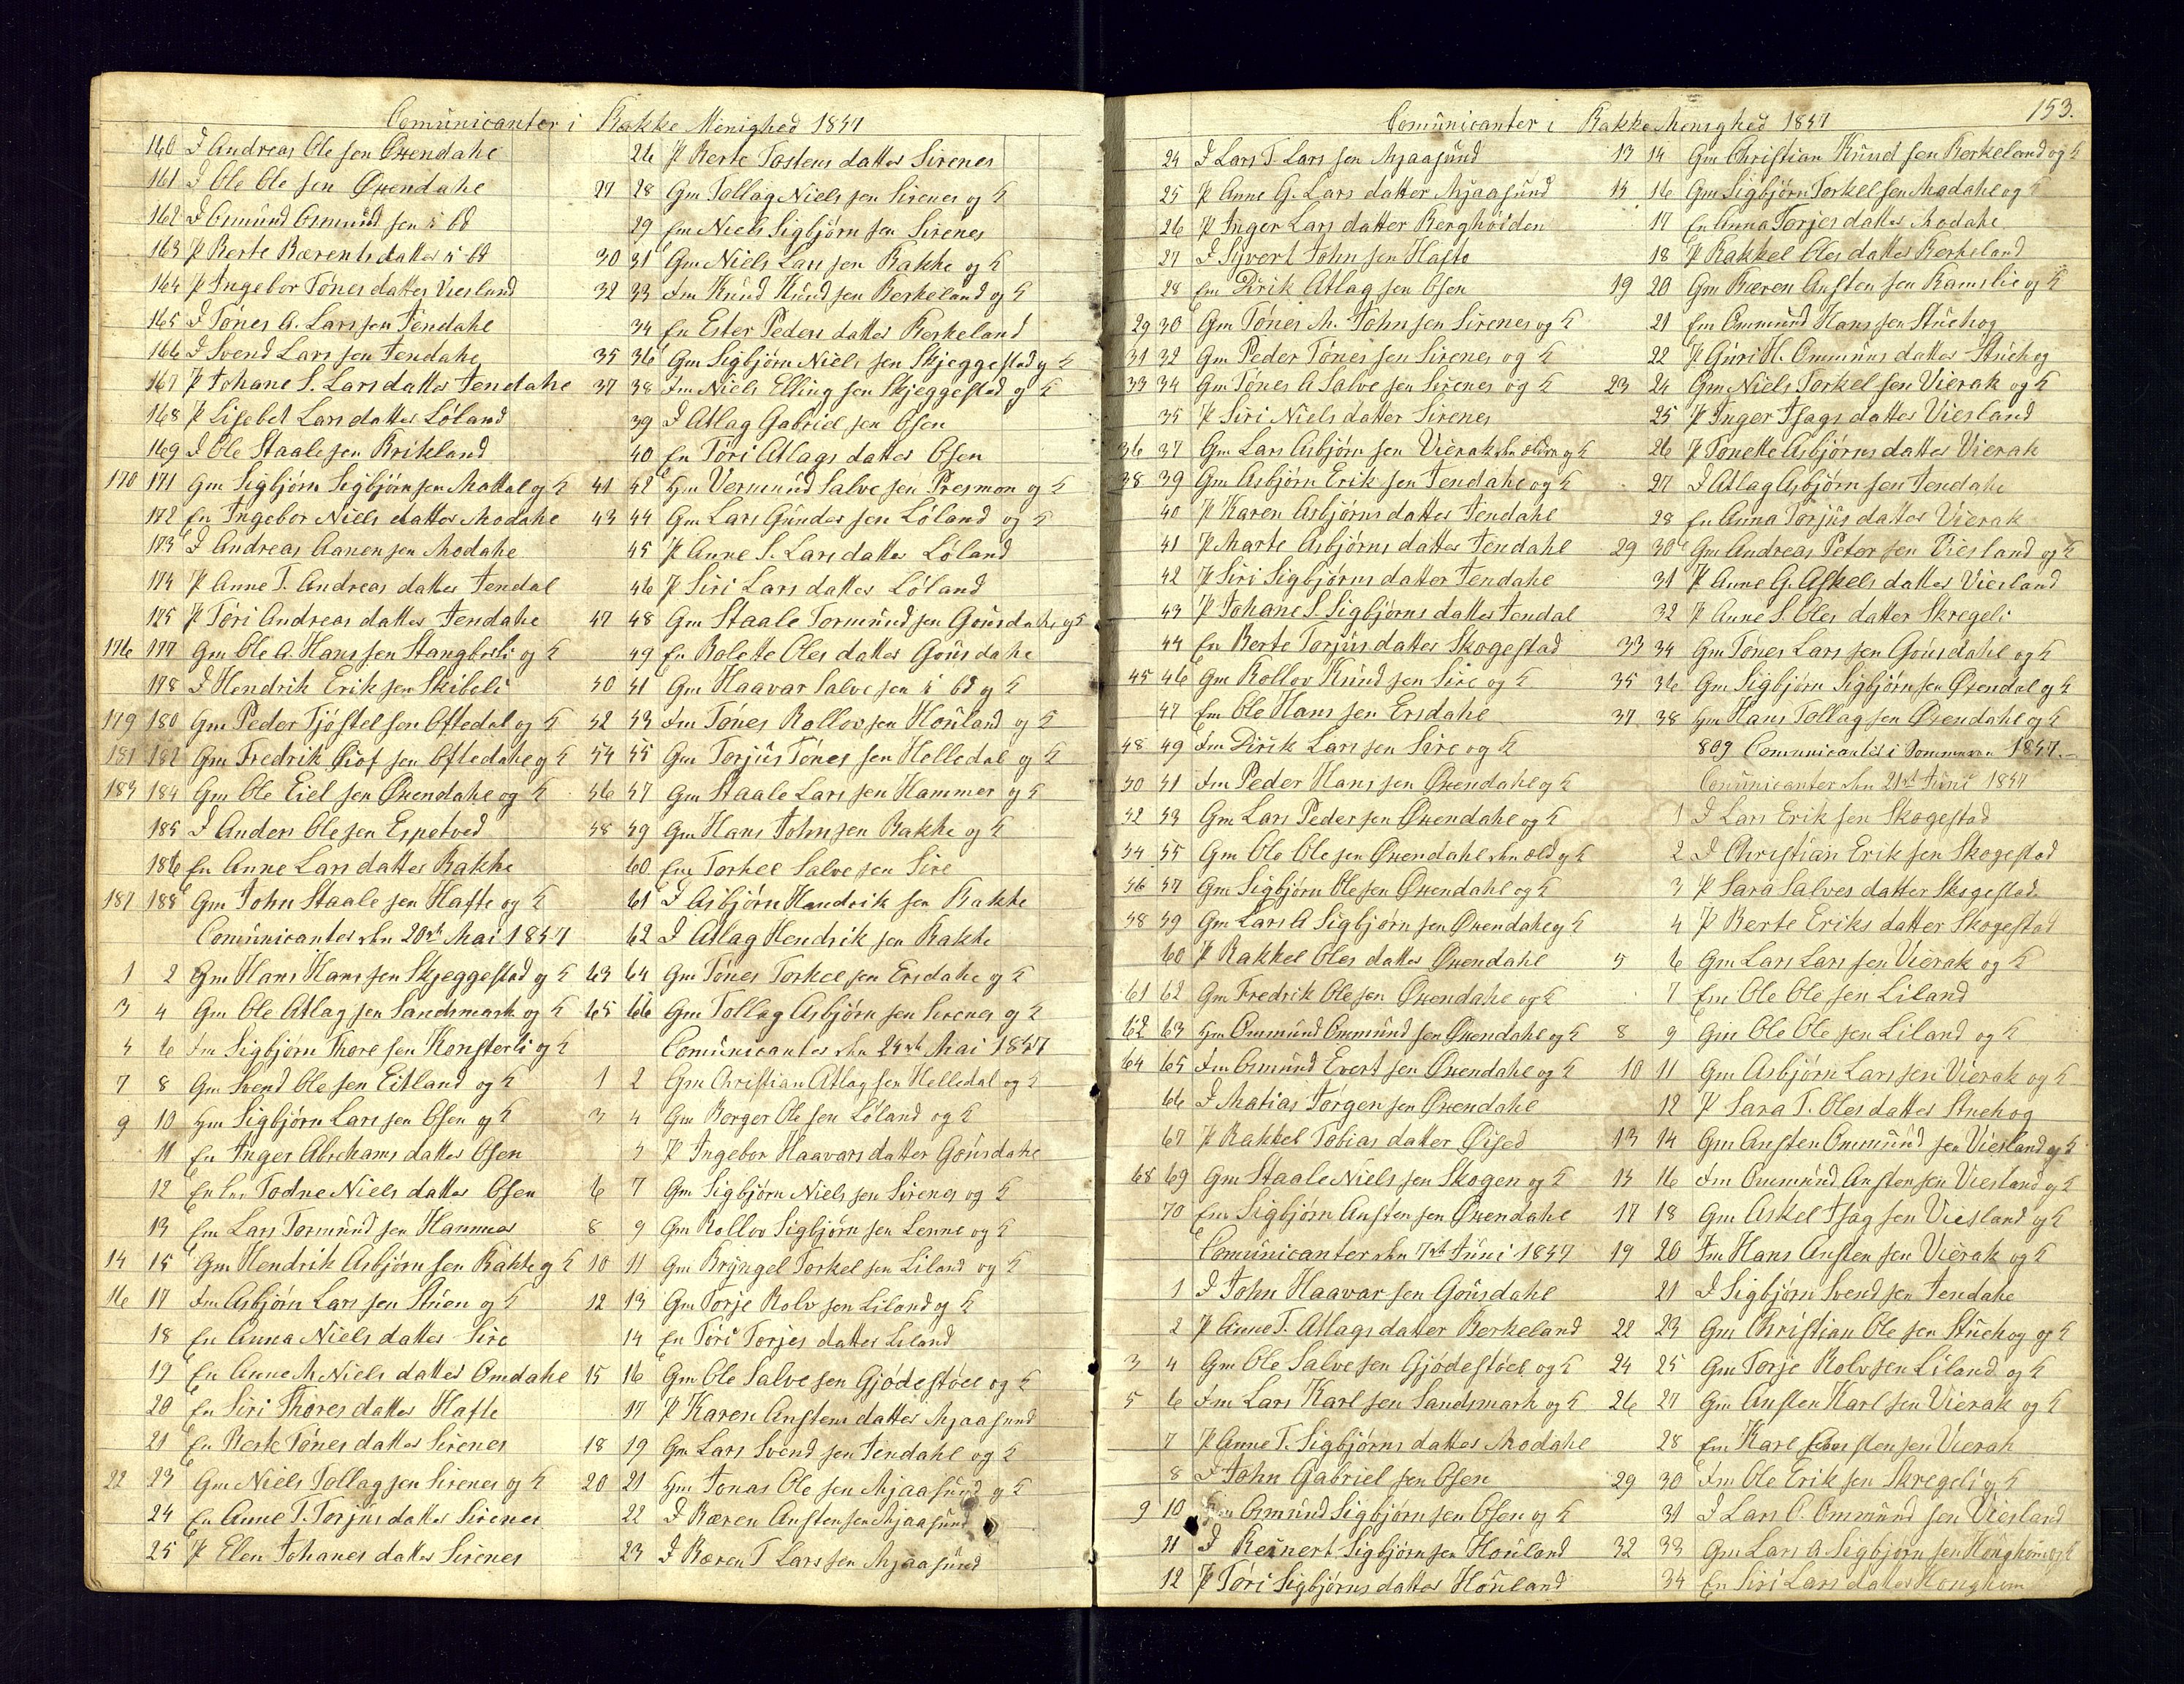 Comunicanter i Bakke Menighed 1857
160 J Andreas Ole sen Øxendahl
161 J Ole Ole sen Øxendahl
162 J Osmund Osmund sen i bd
163 P Berte Bærents datter i bd
164 P Ingebor Tönes datter Viesland
165 J Tönes A. Lars sen Jendahl
166 J Svend Lars sen Jendahl
167 P Johane S. Lars datter Jendahl
168 P Lisebet Lars datter Löland
169 J Ole Staale sen Birkland
170 171 Gm Sigbjörn Sigbjörn sen Mattal og K
172 En Ingebor Niels datter Modahl
173 J Andreas Aanen sen Modahl
174 P Anne T. Andreas datter Jendal
175 P Töri Andreas datter Jendahl
176 177 Gm Ole A. Hans sen Stangborli og K
178 J Hendrik Erik sen Skibeli
179 180 Gm Peder Tjöstel sen Oftedal og K
181 182 Gm Fredrik Eiof sen Oftedahl og K
183 184 Gm Ole Eiel sen Øxendahl og K
185 J Anders Ole sen Espetved
186 En Anne Lars datter Bakke
187 188 Gm John Staale sen Hafte og K
Comunicanter den 20de Mai 1857
1 2 Gm Hans Hans sen Skjeggestad og K
3 4 Gm Ole Atlag sen Sandsmark og K
5 6 Im Sigbjörn Thore sen Konsterli og K
7 8 Gm Svend Ole sen Eitland og K
9 10 Hm Sigbjörn Lars sen Osen og K
11 En Inger Abrahams datter Osen
12 En Todne Niels datter Osen
13 Em Lars Tormund sen Hammer
14 15 Gm Hendrik Asbjörn sen Bakke og K
16 17 Im Asbjörn Lars sen Stuen og K
18 En Anna Niels datter Sire
19 En Anne M Niels datter Omdahl
20 En Siri Thores datter Hafte
21 En Berte Tönes datter Sirenes
22 23 Gm Niels Tollag sen Sirenes og K
24 En Anne T. Torjus datter Sirenes
25 P Elen Johanes datter Sirenes
26 P Berte Tostens datter Sirenes
27 28 Gm Tollag Niels sen Sirenes og K
29 Em Niels Sigbjörn sen Sirenes
30 31 Gm Niels Lars sen Bakke og K
32 33 Im Knud Knud sen Berkeland og K
34 En Ester Peders datter Berkeland
35 36 Gm Sigbjörn Niels sen Skjeggestad og K
37 38 Im Niels Elling sen Skjeggestad og K
39 J Atlag Gabriel sen Osen
40 En Töri Atlags datter Osen
41 42 Hm Vermund Salve sen Presmon og K
43 44 Gm Lars Gunder sen Löland og K
45 P Anne S. Lars datter Löland
46 P Siri Lars datter Löland
47 48 Gm Staale Tormund sen Gousdahl og K
49 En Bolette Oles datter Gousdahl
50 51 Gm Haavar Salve sen i bd og K
52 53 Im Tönes Rollov sen Honland og K
54 55 Gm Torjus Tönes sen Helledal og K
56 57 Gm Staale Lars sen Hammer og K
58 59 Gm Hans John sen Bakke og K
60 Em Torkel Salve sen Sire
61 J Asbjörn Hendrik sen Bakke
62 J Atlag Hendrik sen Bakke
63 64 Gm Tönes Torkel sen Ersdahl og K
65 66 Gm Tollag Asbjörn sen Sirenes og K
Comunicanter den 24de Mai 1857
1 2 Gm Christian Atlag sen Helledal og K
3 4 Gm Borger Ole sen Löland og K
5 P Ingebor Haavars datter Gousdahl
6 7 Gm Sigbjörn Niels sen Sirenes og K
8 9 Gm Rollov Sigbjörn sen Lenne og K
10 11 Gm Bryngel Torkel sen Liland og K
12 13 Gm Torje Rolv sen Liland og K
14 En Töri Torjes datter Liland
15 16 Gm Ole Salve sen Gjödestöel og K
17 P Karen Anstens datter Mjaasund
18 19 Gm Lars Svend sen Jendahl og K
20 21 Hm Jonas Ole sen Mjaasund og K
22 J Bæren Ansten sen Mjaasund
23 J Bæren T Lars sen Mjaasund
Comunicanter i Bakke Menighed 1857
153.
24 J Lars T. Lars sen Mjaasund
25 P Anne G. Lars datter Mjaasund
26 P Inger Lars datter Berghöiden
27 J Syvert John sen Hafte
28 Em Dirik Atlag sen Osen
29 30 Gm Tönes M. John sen Sirenes og K
31 32 Gm Peder Tönes sen Sirenes og K
33 34 Gm Tönes A Salve sen Sirenes og K
35 P Siri Niels datter Sirenes
36 37 Gm Lars Asbjörn sen Vierak den eldre og K
38 39 Gm Asbjörn Erik sen Jendahl og K
40 P Karen Asbjörns datter Jendahl
41 P Marte Asbjörns datter Jendahl
42 P Siri Sigbjörns datter Jendahl
43 P Johane S. Sigbjörns datter Jendal
44 En Berte Torjus datter Skogestad
45 46 Gm Rollov Knud sen Sire og K
47 Em Ole Hans sen Ersdahl
48 49 Im Dirik Lars sen Sire og K
50 51 Im Peder Hans sen Øxendahl og K
52 53 Gm Lars Peder sen Øxendahl og K
54 55 Gm Ole Ole sen Øxendahl den eld og K
56 57 Gm Sigbjörn Ole sen Øxendahl og K
58 59 Gm Lars A Sigbjörn sen Øxendahl og K
60 P Rakkel Oles datter Øxendahl
61 62 Gm Fredrik Ole sen Øxendahl og K
62 63 Hm Ommund Ommund sen Øxendahl og K
64 65 Im Osmund Evert sen Øxendahl og K
66 J Matias Jörgen sen Øxendahl
67 P Rakkel Tobias datter Øised
68 69 Gm Staale Niels sen Skogen og K
70 Em Sigbjörn Ansten sen Øxendahl
Comunicanter den 7de Juni 1857
1 J John Haavar sen Gousdahl
2 P Anne T. Atlags datter Berkeland
3 4 Gm Ole Salve sen Gjödestöel og K
5 6 Im Lars Karl sen Sandsmark og K
7 P Anne T. Sigbjörns datter Modahl
8 J John Gabriel sen Osen
9 10 Osmund Sigbjörn sen Osen og K
11 J Reinert Sigbjörn sen Honland
12 P Töri Sigbjörns datter Honland
13 14 Gm Christian Knud sen Berkeland og K
15 16 Gm Sigbjörn Torkel sen Modahl og K
17 En Anna Torjes datter Modahl
18 P Rakkel Oles datter Berkeland
19 20 Gm Bæren Ansten sen Ramslie og K
21 Em Ommund Hans sen Stuehog
22 P Guri H. Ommuns datter Stuehog
23 24 Gm Niels Torkel sen Vierak og K
25 P Inger Isags datter Viesland
26 P Tonette Asbjörns datter Vierak
27 J Atlag Asbjörn sen Jendahl
28 En Anna Torjus datter Vierak
29 30 Gm Andreas Peter sen Viesland og K
31 P Anne G. Askels datter Viesland
32 P Anne S. Oles datter Skregeli
33 34 Gm Tönes Lars sen Gousdahl og K
35 36 Gm Sigbjörn Sigbjörn sen Øxendal og K
37 38 Hm Hans Tollag sen Øxendahl og K
809 Comunicanter i Sommeren 1857.
Comunicanter den 21de Juni 1857
1 J Lars Erik sen Skogestad
2 J Christian Erik sen Skogestad
3 P Sara Salves datter Skogestad
4 P Berte Eriks datter Skogestad
5 6 Gm Lars Lars sen Vierak og K
7 Em Ole Ole sen Liland
8 9 Gm Ole Ole sen Liland og K
10 11 Gm Asbjörn Lars sen Vierak og K
12 P Sara T. Oles datter Stuehog
13 14 Gm Ansten Ommund sen Viesland og K
15 16 Im Ommund Ansten sen Viesland og K
17 18 Gm Askel Isag sen Viesland og K
19 20 Im Hans Ansten sen Vierak og K
21 J Sigbjörn Svend sen Jendahl
22 23 Gm Christian Ole sen Stuehog og K
24 25 Gm Torje Rolv sen Liland og K
26 27 Gm Ansten Karl sen Vierak og K
28 Em Karl Ansten sen Vierak
29 30 Im Ole Erik sen Skregeli og K
31 J Lars O. Ommund sen Viesland
32 33 Gm Lars A Sigbjörn sen Honghom og K
34 En Siri Lars datter Honghom